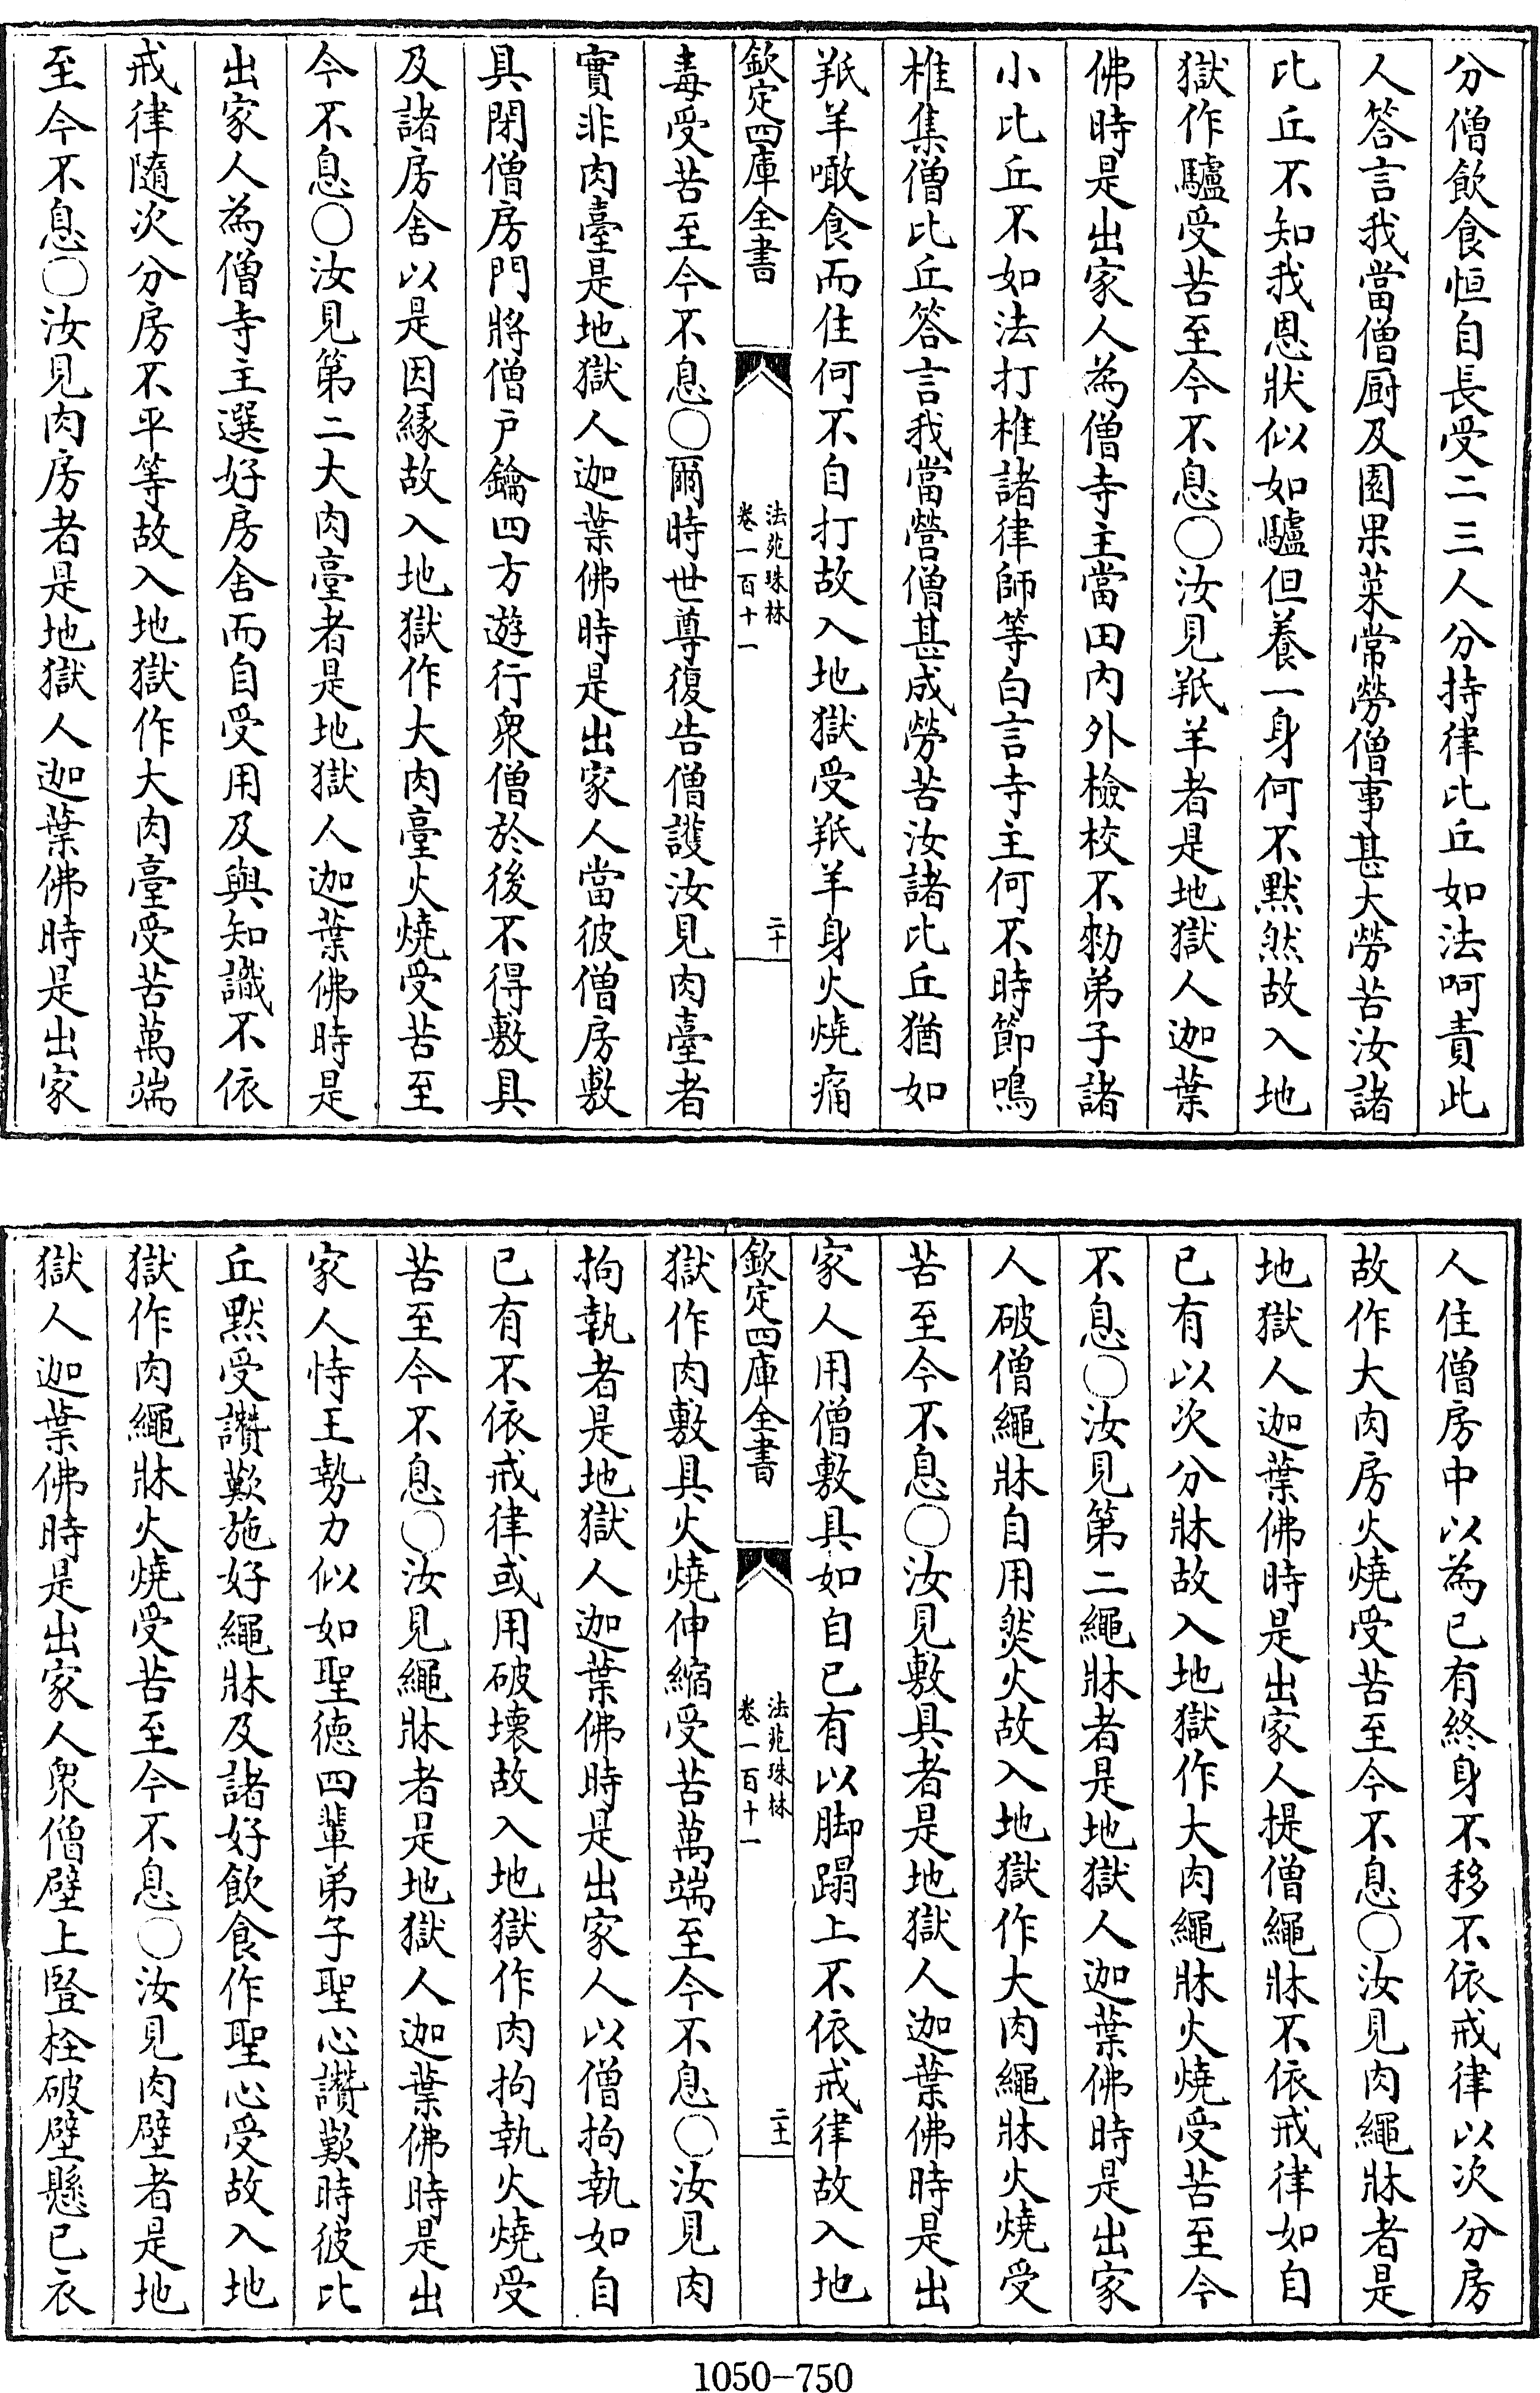 分僧飲食恒自長受二三人分持律比丘如法呵責此
人答言我當僧厨及園果菜常勞僧事甚大勞苦汝諸
比丘不知我恩狀似如驢但養一身何不默然故入地
獄作驢受苦至今不息〇汝見羝羊者是地獄人迦葉
佛時是出家人為僧寺主當田內外檢校不勑弟子諸
小比丘不如法打椎諸律師等白言寺主何不時節鳴
椎集僧比丘答言我當營僧甚成勞苦汝諸比丘猶如
羝羊噉食而住何不自打故入地獄受羝羊身火燒痛
欽定四庫全書
法苑珠林
卷一百十一
二十
毒受苦至今不息〇爾時世尊復告僧護汝見肉臺者
實非肉臺是地獄人迦葉佛時是出家人當彼僧房敷
具閉僧房門將僧戶鑰四方遊行衆僧於後不得敷具
及諸房舍以是因緣故入地獄作大肉臺火燒受苦至
今不息〇汝見第二大肉臺者是地獄人迦葉佛時是
出家人為僧寺主選好房舍而自受用及與知識不依
戒律隨次分房不平等故入地獄作大肉臺受苦萬端
至今不息〇汝見肉房者是地獄人迦葉佛時是出家
人住僧房中以為已有終身不移不依戒律以次分房
故作大肉房火燒受苦至今不息〇汝見肉繩牀者是
地獄人迦葉佛時是出家人提僧繩牀不依戒律如自
已有以次分牀故入地獄作大肉繩牀火燒受苦至今
不息〇汝見第二繩牀者是地獄人迦葉佛時是出家
人破僧繩牀自用然火故入地獄作大肉繩牀火燒受
苦至今不息〇汝見敷具者是地獄人迦葉佛時是出
家人用僧敷具如自已有以脚蹋上不依戒律故入地
欽定四庫全書
法苑珠林
卷一百十一
二十一
獄作肉敷具火燒伸縮受苦萬端至今不息〇汝見肉
拘執者是地獄人迦葉佛時是出家人以僧拘執如自
已有不依戒律或用破壞故入地獄作肉拘執火燒受
苦至今不息〇汝見繩牀者是地獄人迦葉佛時是出
家人恃王勢力似如聖德四輩弟子聖心讚歎時彼比
丘默受讚歎施好繩牀及諸好飲食作聖心受故入地
獄作肉繩牀火燒受苦至今不息〇汝見肉壁者是地
獄人迦葉佛時是出家人衆僧壁上豎栓破壁懸已衣
1050-750